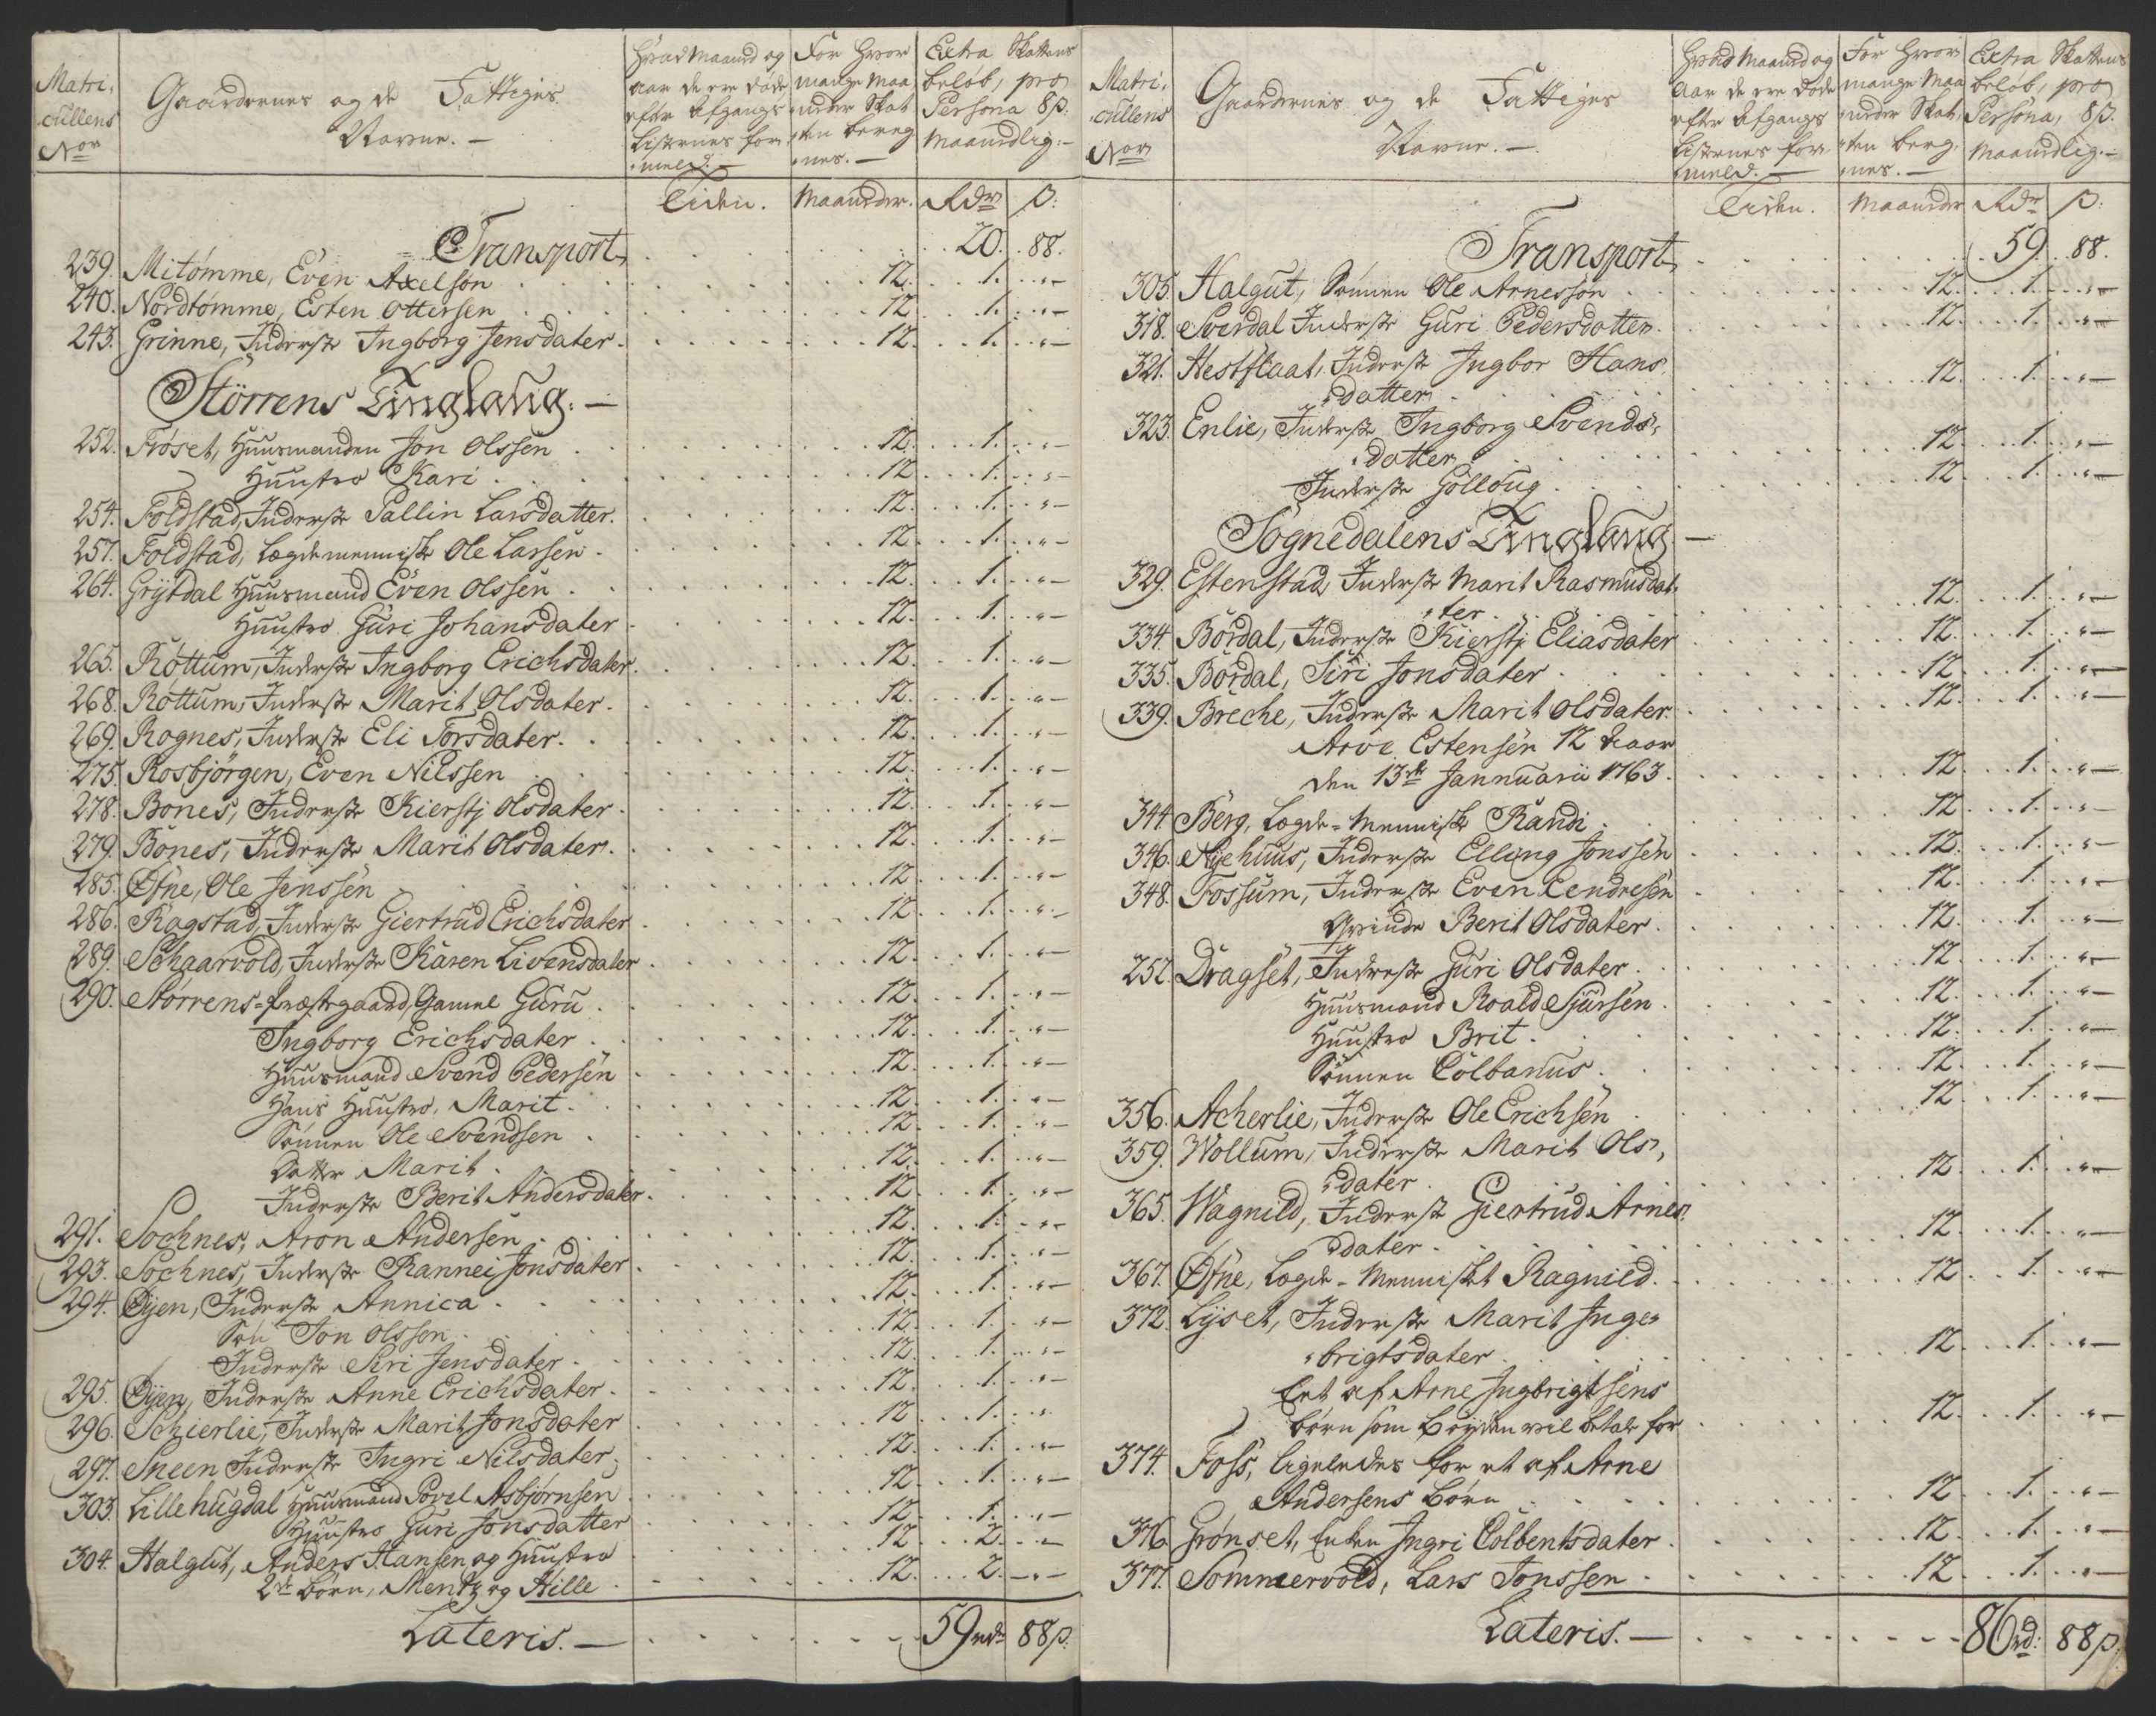 Matri,
cullens
Nor
Gaardernes og de Fattiges
Navne. —
Hvad Maaned og
aar de ere døde
efter Afgangs
Listernes for,
meld. —
For hvor
mange Maa
neder Skat
ten bereg
nes. —
Extra Skattens
beløb, pro
Persona 8 β.
Maanedlig. —
Tiden. Maaneder. Rdr β:
Transport 20. 88.
239. Mitømme, Even Axelsøn 12. 1. " —
240. Nordtømme, Esten Ottersen 12 1. " —
243. Grinne, Inderste Ingborg Jensdater. 12. 1. " —
Störrens Tinglaug. —
252. Frøset, Huusmanden Jon Olssen 12. 1. " —
Huustro Kari 12 1. " —
254. Foldstad, Inderste Pallin Larsdatter. 12. 1. " —
257. Foldstad, Lægdemenniske Ole Larsen. 12. 1. " —
264. Grÿtdal Huusmand Even Olssen 12. 1. " —
Huustro Guri Johansdater 12. 1. " —
265. Rottum, Inderste Ingborg Erichsdater. 12. 1. " —
268. Rottum, Inderste Marit Olsdater. 12. 1. " —
269. Rognes, Inderste Eli Torsdater. 12. 1. " —
275. Rosbjörgen, Even Nilssen 12. 1. " —
278. Bones, Inderste Kierstj Olsdater. 12. 1. " —
279. Bönes, Inderste Marit Olsdater. 12. 1. " —
285. Øfne, Ole Jenssen 12. 1. " —
286. Ragstad, Inderste Giertrud Erichsdater 12. 1. " —
289. Schaarvold, Inderste Karen Livensdater 12. 1. " —
290. Størrens-Præstegaard, Gamel Guru. 12. 1. " —
Ingborg Erichsdater. 12. 1. " —
Huusmand Svend Pedersen 12. 1. " —
Hans Huustro, Marit. 12. 1. " —
Sønnen Ole Svendsen 12. 1. " —
Datter Marit. 12. 1. " —
Inderste Berit Andersdater. 12. 1. " —
291. Sochnes, Aron Andersen. 12. 1. " —
293. Sochnes, Inderste Rannei Jonsdater 12. 1. " —
294. Øyen, Inderste Annica 12. 1. " —
Søn Jon Olsson 12. 1. " —
Inderste Siri Jensdater. 12. 1. " —
295. Øyen, Inderste Anne Erichsdater. 12. 1. " —
296. Schierlie, Inderste Marit Jonsdater 12 1. "
297. Sneen Inderste Ingri Nilsdater, 12. 1. " —
303. Lillehugdal Huusmand Povel Asbjørnsen 12 1. " —
Huustro Guri Jonsdatter 12 1. " —
304. Halgut, Anders Hansen og Huustro 12 2. " —
2de Børn, Mentz og Hille 12. 2. " —
Lateris. — 59 rdr 88 β.
Matri,
cullens
Nor
Gaardernes og de Fattiges
Navne. —
Hvad Maaned og
Aar de ere døde
efter Afgangs
Listernes for
meld. —
For hvor
mange Maa
neder Skat,
ten bereg,
nes. —
Extra Skattens
beløb, pro
Persona, 8 β.
Maanedlig. —
Tiden. Maaneder Rdr β:
Transport 59. 88.
305. Halgut, Sønnen Ole Arnessøn 12. 1. " —
318. Sverdal Inderste Guri Pedersdatter. 12. 1. " —
321. Hestflaat, Inderste Ingbor Hans
datter 12. 1. " —
323. Enlie, Inderste Ingborg Svends,
datter 12. 1. " —
Inderste Gölloug 12. 1. " —
Sognedalens Tinglaug —
329. Estenstad, Inderste Marit Rasmusdat,
ter 12. 1. " —
334. Bordal, Inderste Kierstj Eliasdater 12. 1. " —
335. Bordal, Siri Jonsdater 12. 1. " —
339. Breche, Inderste Marit Olsdater. 12. 1. " —
Arve Estensen 12 Aar
den 13de Jannuarii 1763. 12. 1. " —
344. Berg, Lægde-Menniske Randi 12. 1. " —
346. Nyehuus, Inderste Elling Jonssen 12. 1. " —
348. Fossum, Inderste Even Eendresen 12. 1. " —
Qvinde Berit Olsdater. 12. 1. " —
252. Dragset, Inderste Guri Olsdater. 12. 1. " —
Huusmand Roald Sjursen 12. 1. " —
Huustro Brit. 12. 1. " —
Sønnen Colbanus. 12. 1. " —
356. Acherlie, Inderste Ole Erichsen 12. 1. " —
359. Wollum, Inderste Marit Ols,
dater 12. 1. " —
365. Wagnild, Inderst Giertrud Arnes,
dater 12. 1. " —
367. Øfne, Lægde-Mennisket Ragnild. 12. 1. " —
372. Lÿset, Inderste Marit Inge,
brigtsdater 12. 1. " —
Eet af Arne Ingbrigtsens
Børn som Bøyden vil betale for 12. 1. " —
374. Foss, ligeledes for et af Arne
Andersens Børn 12. 1. " —
376. Grønset, Enken Ingri Colbentsdater. 12. 1. " —
377. Sommervold, Lars Jonssen 12. 1. " —
Lateris. — 86 rd: 88 β.